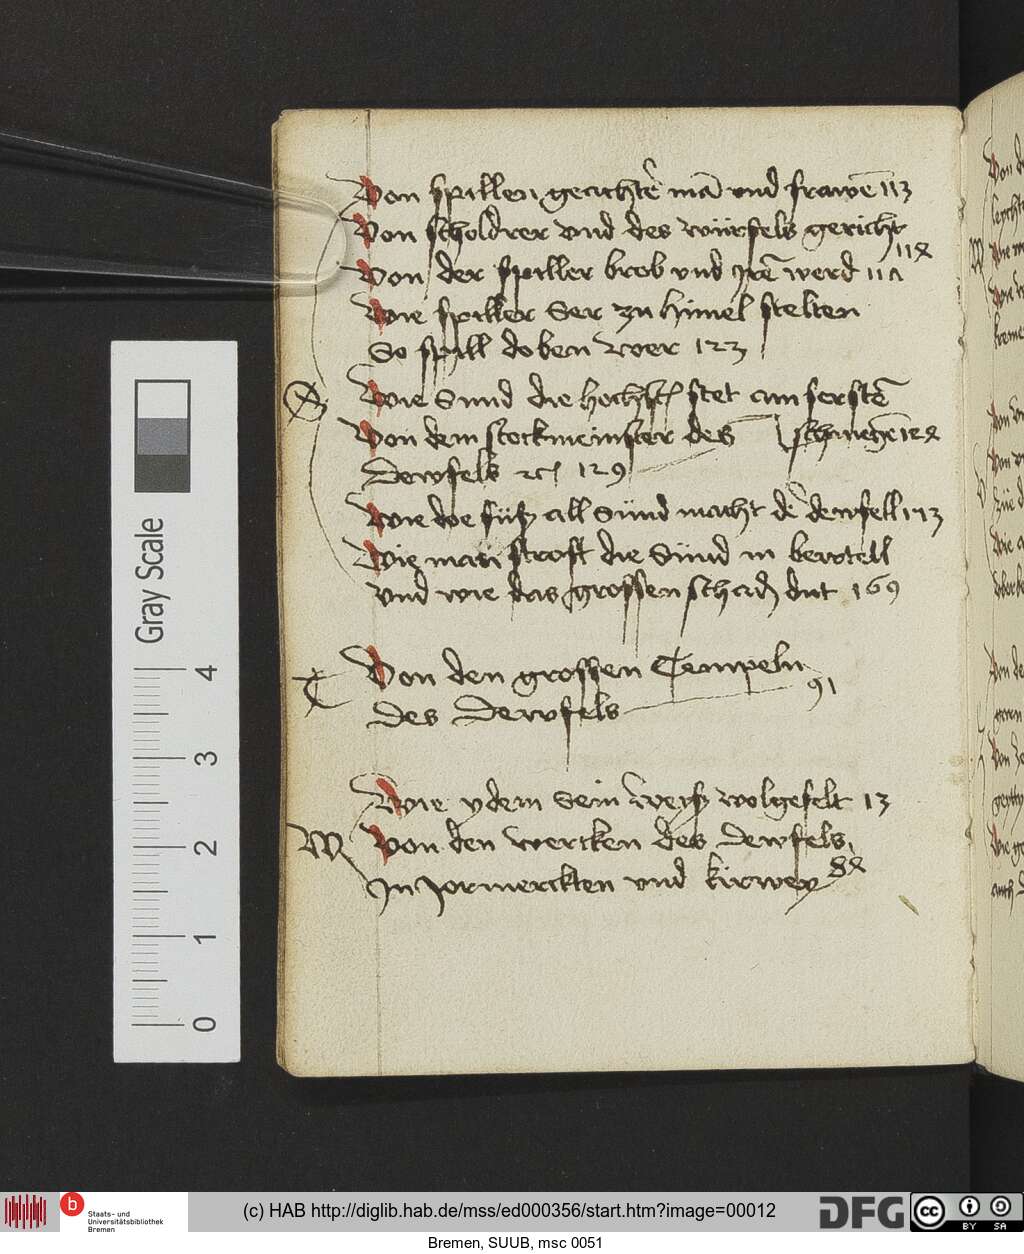 Von spillen geticht ē mā vnd frawē 113
Von scholdrer vnd des würfels gericht
118
Von der spiller brob vnd irē werd 11
Wie spiller Ser zu himel stelten
So spill doben wer 123
S
Wie Sund die hochst stet am ferstē
Von dem stockmeinster des schmiegē 128
Dewfels 129
Wie die füß all Sünd macht dē dewfell 173
Wie man stroft die Sünd in bewtell
vnd wie das grossen schad dut 169
T
Von den grossen Tempeln
des dewfels 91
Wie ydem Sein weyß wolgefelt 13
W
Von den wercken des dewfels
In Jormerckten vnd kirwey 88
Gray Scale
4
3
2
1
0
b
Staats- und
Universitätsbibliothek
Bremen
(c) HAB http://diglib.hab.de/mss/ed000356/start.htm?image=00012
DFG
cc
BY SA
Bremen, SUUB, msc 0051